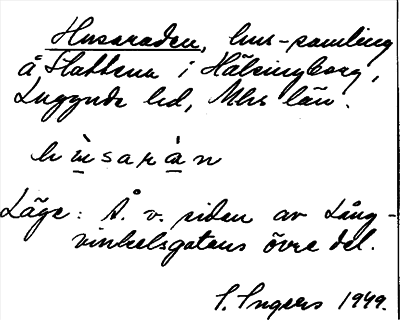 Husaraden, hus-samling
å Slättena i Hälsingborg,
Luggude hd, Mlhs län.
hùsaràn
Läge: Å. v. sidan av Lång-
vinkelsgatans övre del.
S. Ingers 1949.